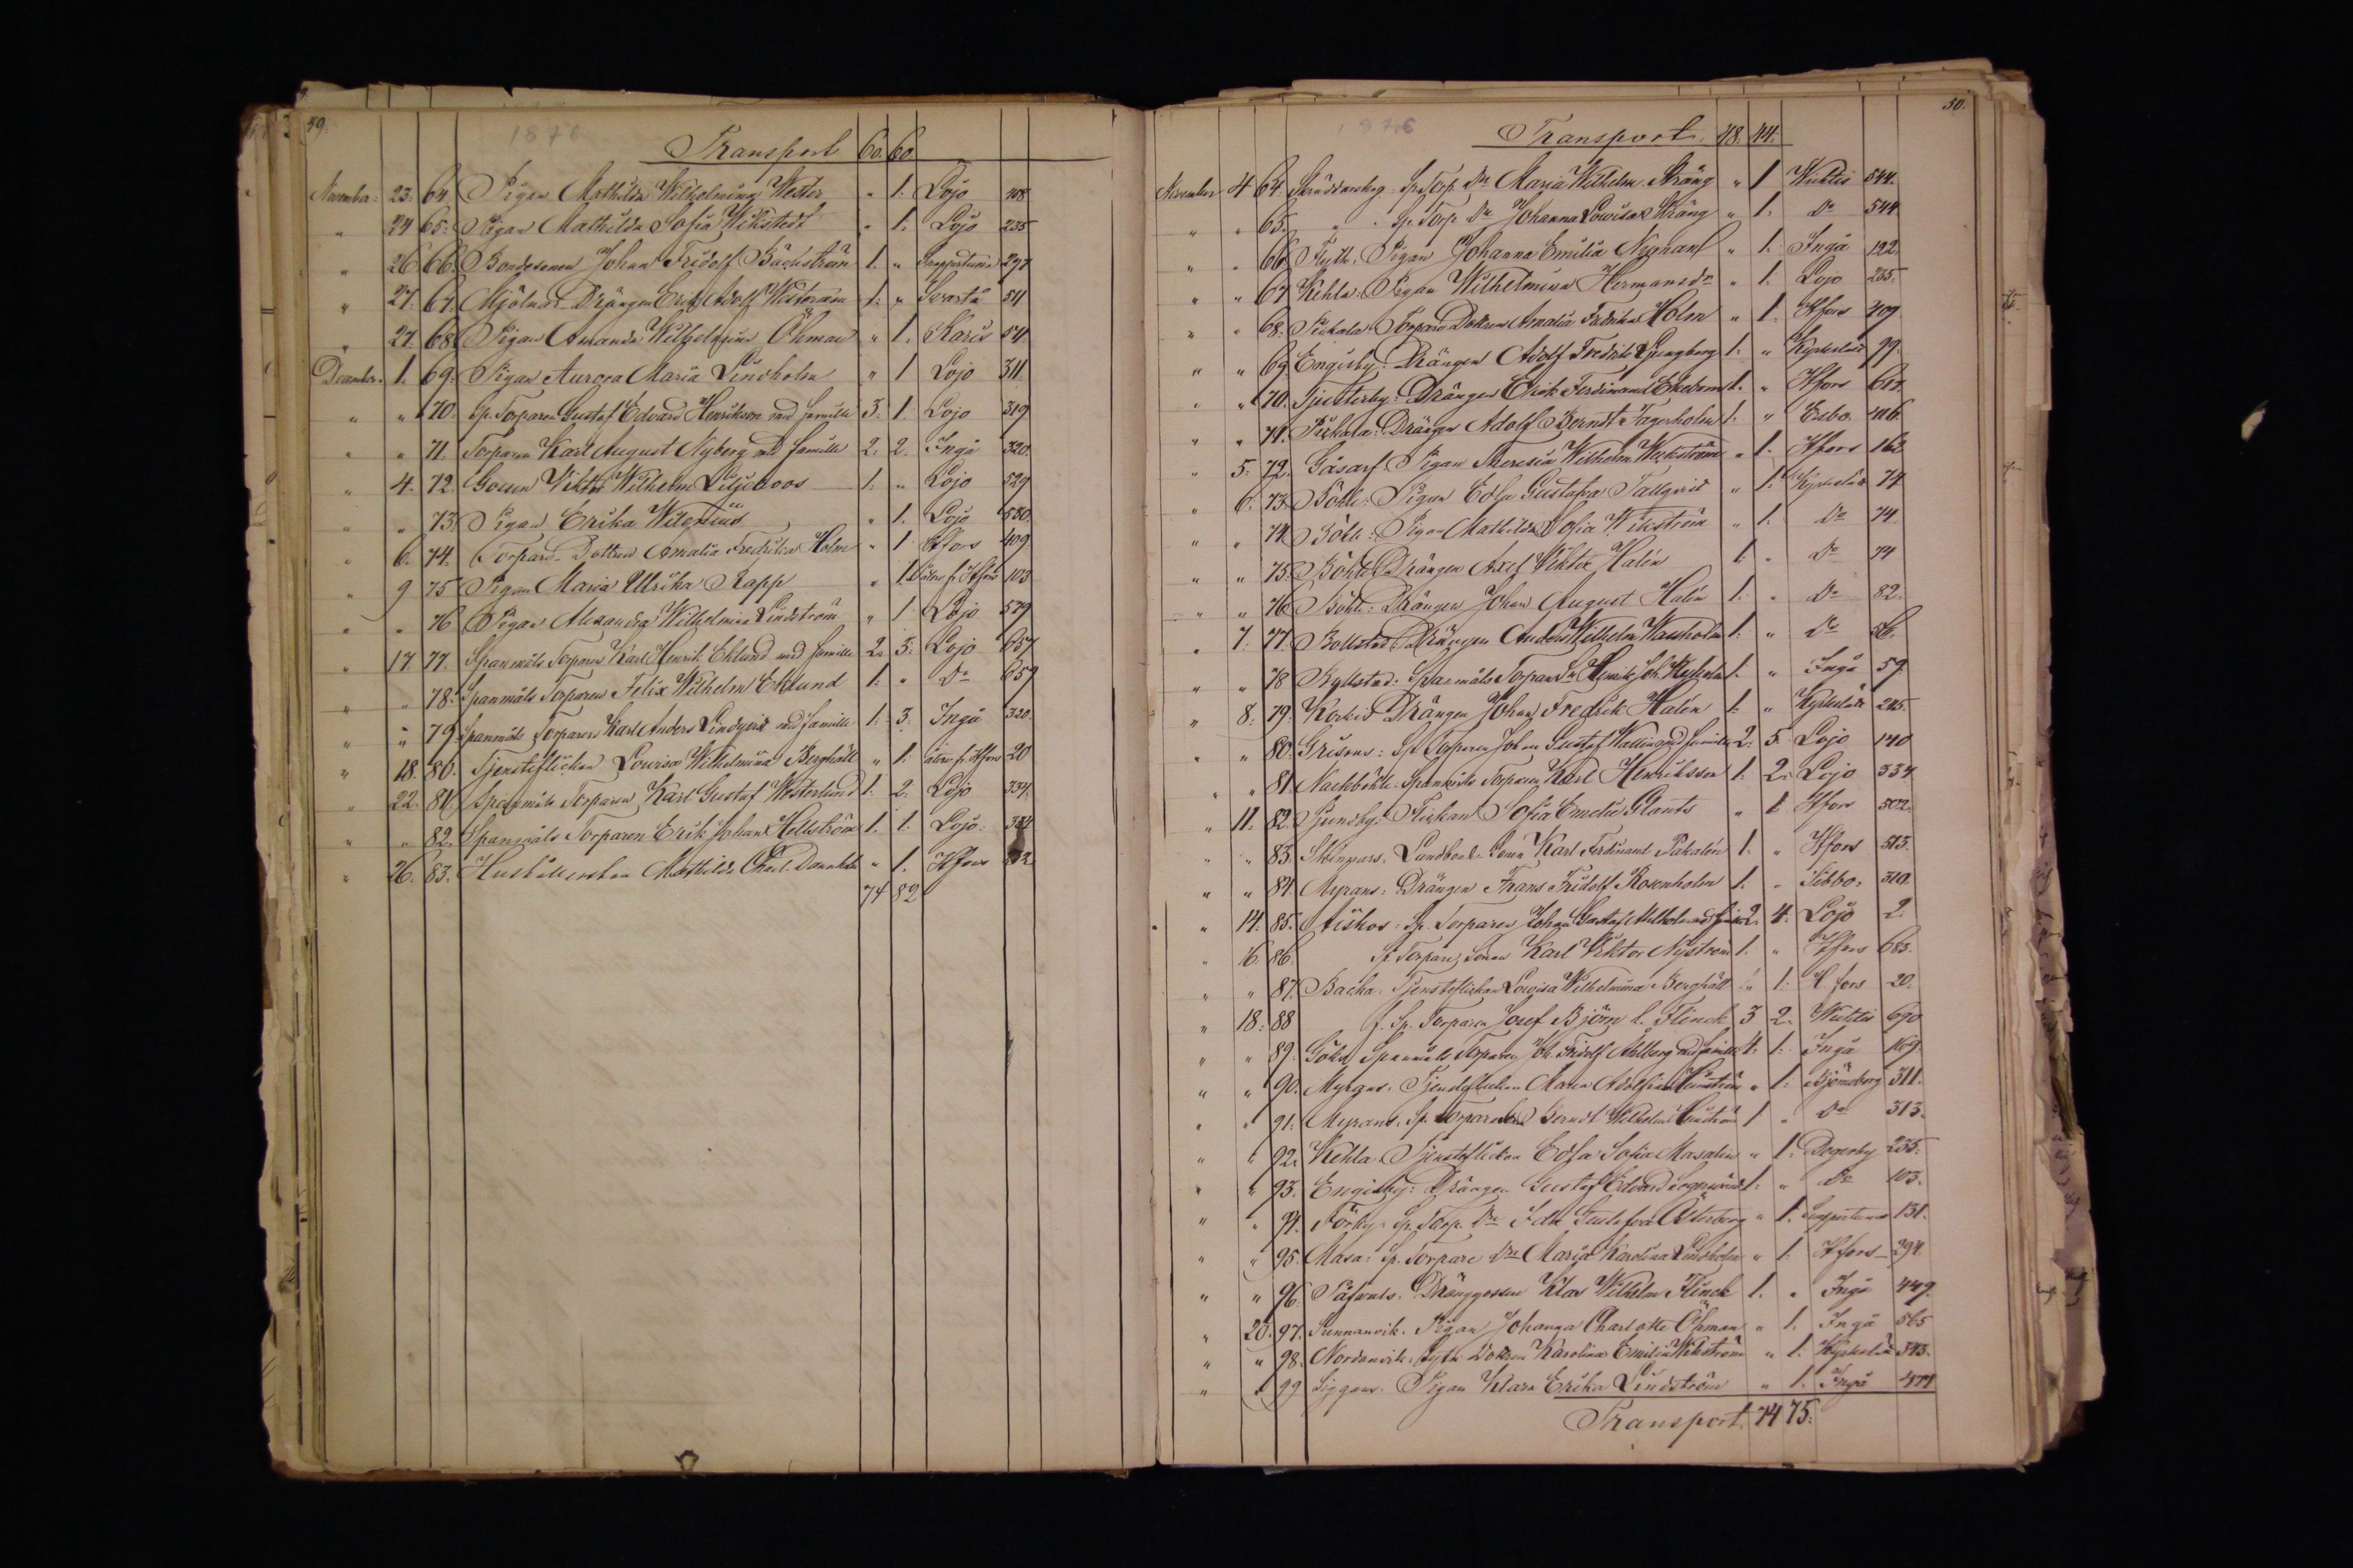 49.
1876
Transport 60. 60
November 23. 64 Pigan Mathilda Wilhelmina Wester " 1. Lojo 408
" 24 65. Pigan Mathilda Sofia Wikstedt " 1. Lojo 235
" 26 66. Bondesonen Johan Fridolf Bäckström 1. " 297
" 27. 67. Mjölnar Drängen Erik Adolf 1. " Svartå 54
" 27. 68 Pigan Amanda Wilhelmina Öhman " 1. Karis 54.
December. 1. 69. Pigan Aurora Maria Lindholm " 1 Lojo 311
" " 70. Sp. Torparen Gustaf Edvard Henrikson med familie 3. 1. Lojo 319
" " 71. Torparen Karl August Nyberg md familie 2. 2. Ingå 320.
" 4. 72. Gossen Viktor Wilhelm Liljeroos 1. " Lojo 529
" " 73. Pigan Erika Wilenius " 1. Lojo 530.
" 6. 74. Torpare Dottren Amalia Fredrika Holm " 1 Hfors 409
" 9 75 Pigan Maria Ulrika Rapp " 1. fr Hfors 103
" " 76 Pigan Alexandra Wilhelmina Lindström " 1. Lojo 579
" 17. 77. Spanmåls Torparen Karl Henrik Eklund med familie 2. 3. Lojo 657
" " 78. Spanmåls Torparen Felix Wilhelm Eklund 1. " Do 659
" " 79 Spanmåls Torparen Karl Anders Lindqvist med familie 1. 3. Ingå 320.
" 18. 80. Tjensteflickan Lovisa Wilhelmina Berghäll " 1. åter fr. Hfors 20
" 22. 81. Spanmåls Torparen Karl Gustaf Westerlund 1. 2. Lojo 334.
" " 82. Spanmåls Torparen Erik Johan Hellström 1. 1. Lojo. 334
" 26. 83. Hushållerskan Mathilda Charl. " 1. Hfors
74 82
50.
1876
Transport. 48. 44.
November 4 64. Sp. Torp. Dr Maria Wilhelm. Sträng " 1 Wichtis 544.
" " 65. " Sp. Torp. Dr Johanna Lovisa Sträng " 1. Do 544
" " 66 Flyth. Pigan Johanna Emilia Nyman " 1. Ingå 122.
" " 67 Kehla. Pigan Wilhelmina Hermansdr " 1. Lojo 235.
" " 68. Pickala. Torpare Dottren Amalia Fredrika Holm " 1. Hfors 409
" " 69 Engisby. Drängen Adolf Fredrik Ljungberg 1. " Kyrkslätt 99.
" " 70. Tjusterby. Drängen Erik Ferdinand Ekebom 1. " Hfors 617
" " 71. Pickala. Drängen Adolf Berndt Fagerholm 1. " Esbo. 406
" 5. 72. Gåsarf. Pigan Theresia Wilhelm. Weckström " 1. Hfors 162
" 6. 73. Böhle. Pigan Edla Gustafva Tallqvist " 1. Kyrkslätt 74
" " 74. Böle. Pigan Mathilda Sofia Wikström " 1. Do 74
" " 75. Böhle. Drängen Axel Viktor Halin 1. " Do 74
" " 76 Böhle. Drängen Johan August Halin 1. " Do 82.
" 7. 77. Bollstad. Drängen Anders Wilhelm 1. " Do 56.
" " 78 Spanmåls Torpare Sn Henrik Joh. 1. " Ingå 59.
" 8. 79. Korkis Drängen Johan Fredrik Halin 1. " Kyrkslätt 245.
" " 80. Grisans. Sp. Torparen Johan Gustaf Wallin med familie 2. 5. Lojo 140
" " 81. Nackböhle. Spanmåls Torparen Karl Henriksson 1. 2. Lojo 334
" 11. 82. Sjundby. Flickan Sofia Emelie Glants " 1. Hfors 502.
" " 83. Landbonde Sonen Karl Ferdinand Pakalén 1. " Hfors 513.
" " 84. Myrans. Drängen Frans Fridolf Rosenholm 1. " Sibbo. 310
" 14. 85. Aiskos. Sp. Torparen Johan Gustaf md familie 2. 4. Lojo 2.
" 16. 86. Sp. Torpare Sonen Karl Viktor Nyström 1. " Hfors 683.
" " 87. Backa. Tjensteflickan Lovisa Wilhelmina Berghäll " 1. Hfors 20.
" 18. 88 f. Sp. Torparen Josef Björn l. Flinck 3 2. Wichtis 690
" " 89. Spanmåls Torparen Joh. Fridolf Ahlberg md familie 4. 1. Ingå 169.
" " 90. Myrans. Maria Adolfina " 1. Björneborg 311.
" " 91. Myrans. Sp. Torpare Sn Berndt Wilhelm 1 " Do 313.
" " 92. Kehla. Tjensteflickan Edla Sofia Masalin " 1. Degerby 235.
" " 93. Engisby. Drängen Gustaf Edvard 1. " Do 103.
" " 94. Förby. Sp. Torp. Dr Ida Gustafva Österberg " 1. 131.
" " 95. Masa. Sp. Torpare Dr Maria Karolina Lindholm " 1. Hfors 394.
" " 96. Dränggossen Klas Wilhelm Flinck 1. " Ingå 449.
" 20. 97. Sunnanvik. Pigan Johanna Charlotte Öhman " 1. Ingå 565
" " 98. Nordanvik. Dottren Karolina Emilia Wikström " 1. Kyrkslätt 543.
" " 99 Siggans. Pigan Klara Erika Lindström " 1. Ingå 477
Transport. 74 75.